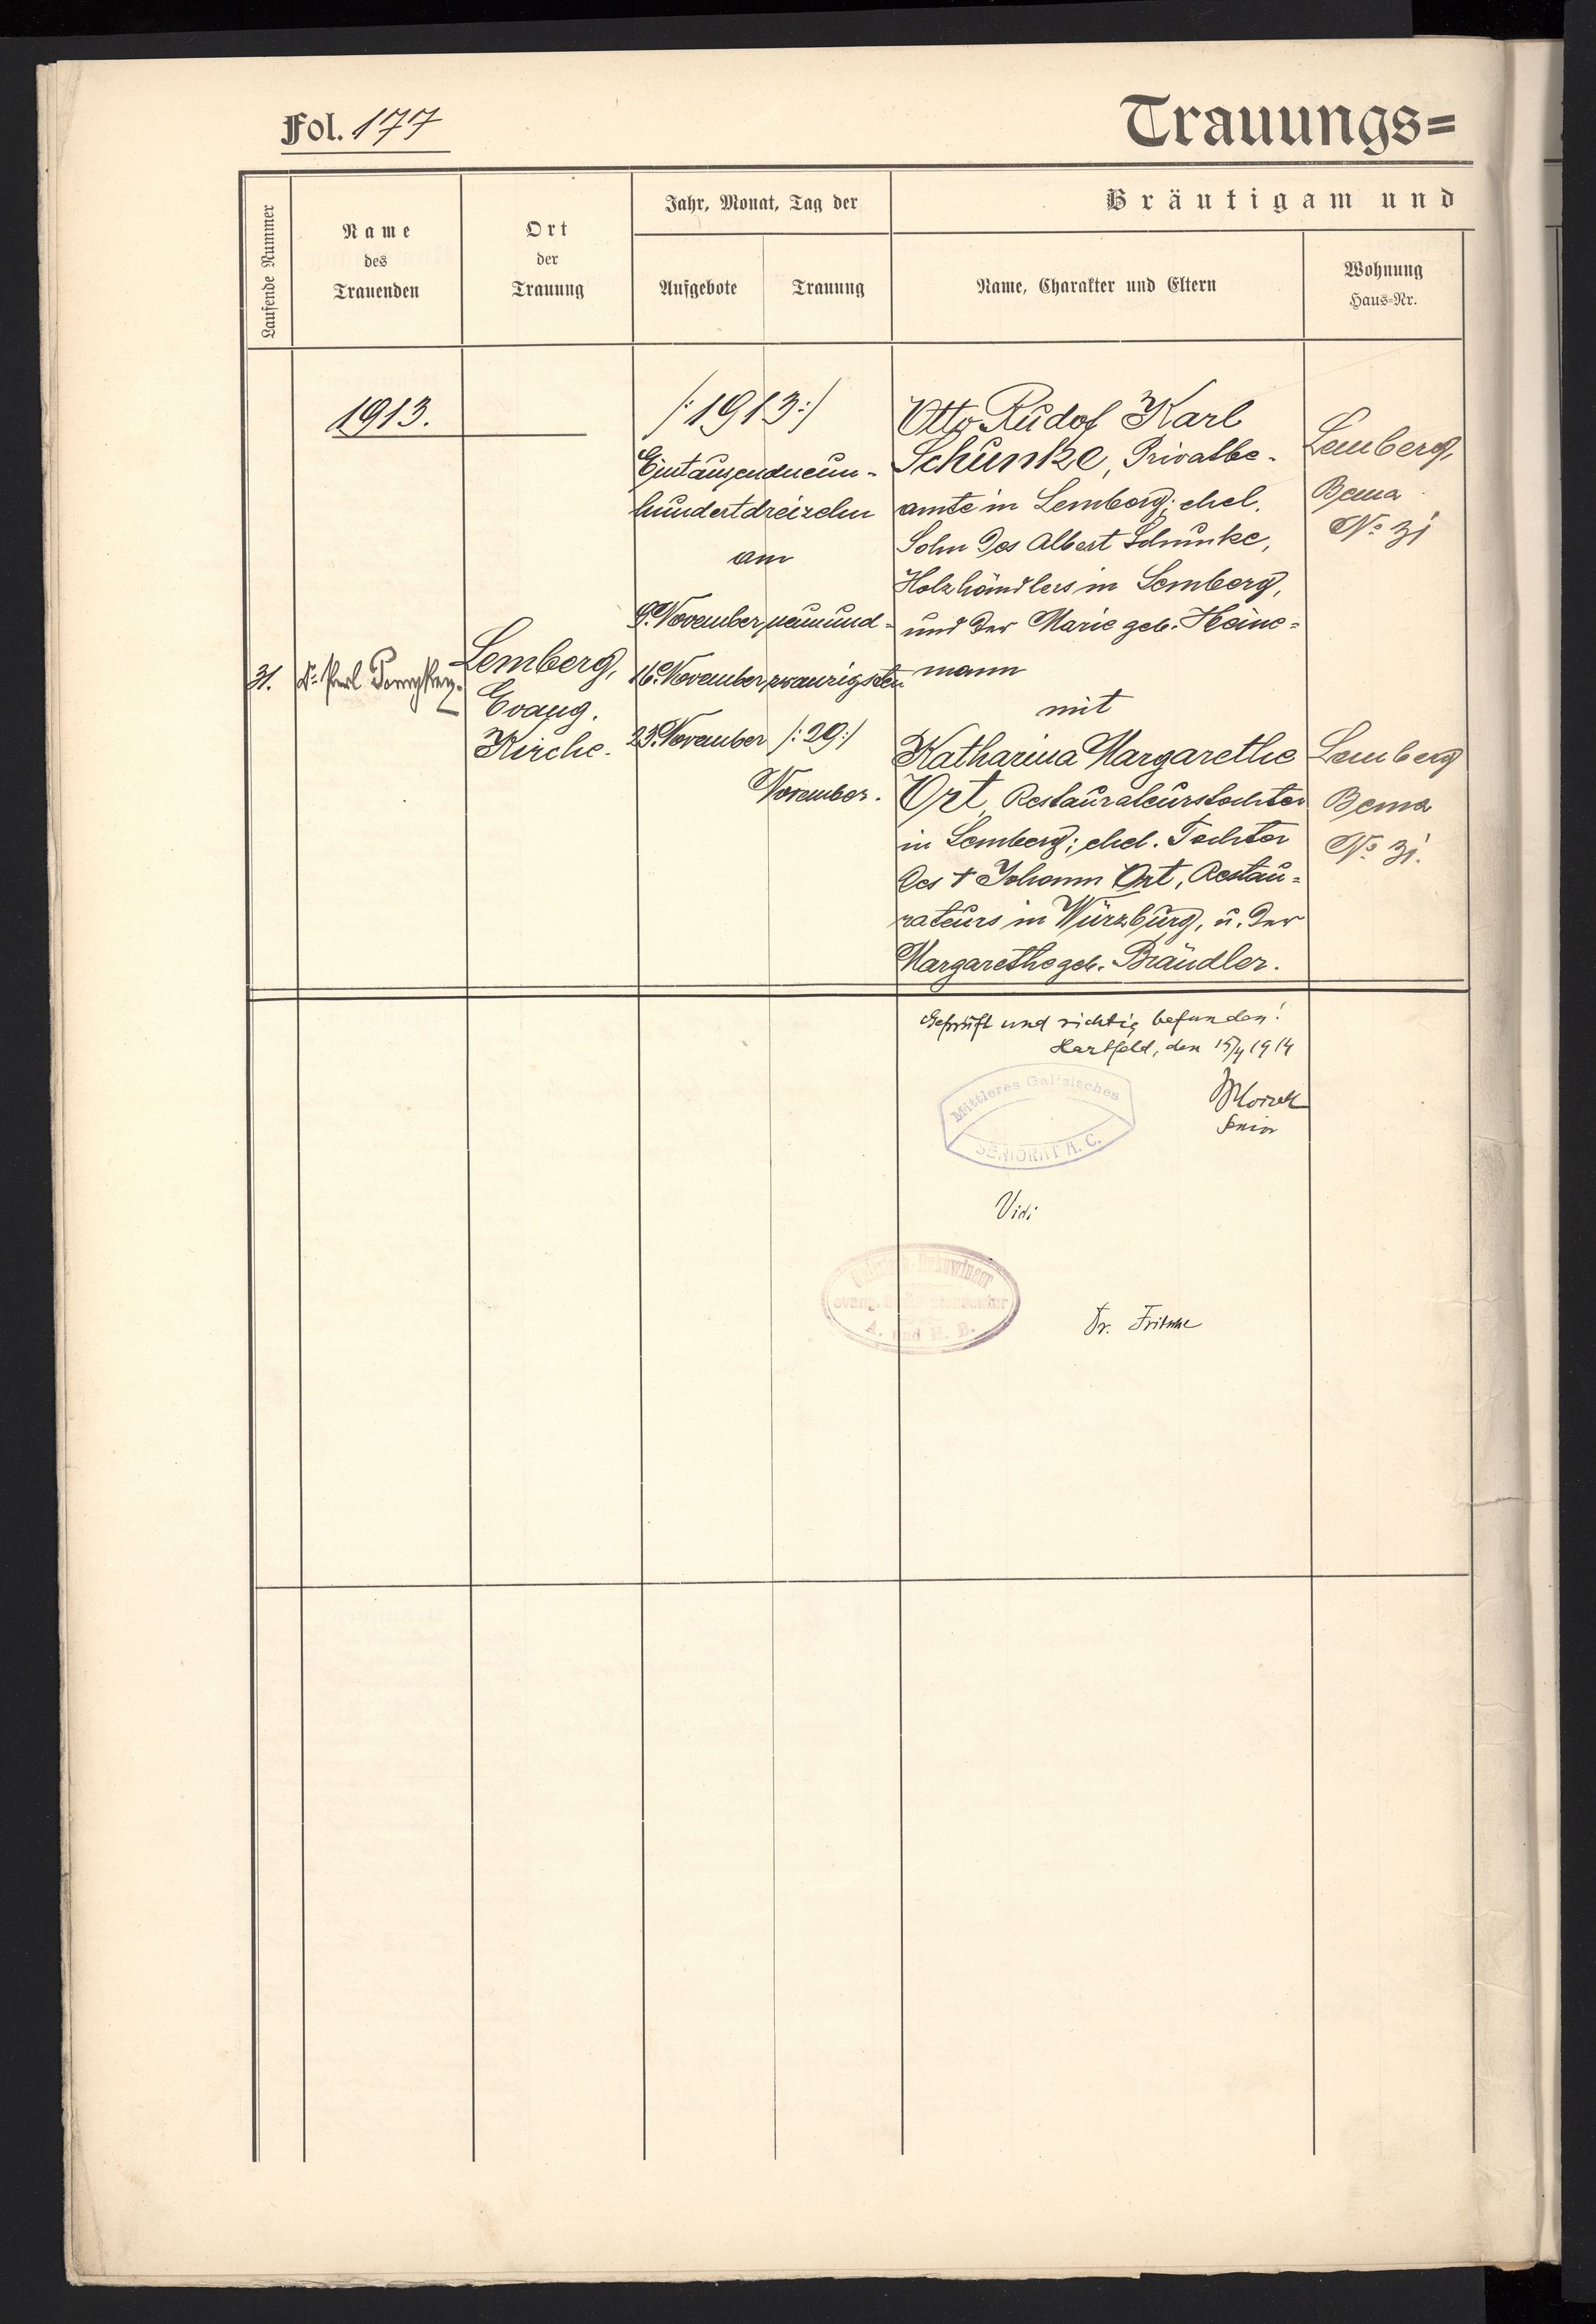 Fol. 177
Trauungs=
Laufende Nummer
Name
des
Trauenden
Ort
der
Trauung
Jahr, Monat, Tag der
Aufgebote
Trauung
Bräutigam und
Name, Charakter und Eltern
Wohnung
Haus=Nr.
1913.
/:1913:/
Eintausendneun-
hundertdreizehn
am
9. November
neunund-
16. November
zwanzigsten
23. November
/:29:/
November.
31.
Dr. Paul
Lemberg,
Evang.
Kirche.
Otto Rudof Karl
Schunke, Privatbe-
amte in Lemberg; ehel.
Sohn des Albert Schunke,
Holzhändlers in Lemberg,
und der Marie geb. Heine=
mann
mit
Katharina Margarethe
Ort, Restaurateurstochter
in Lemberg; ehel. Tochter
des + Johann Ort, Restau=
rateurs in Würzburg, u. der
Margarethe geb. Brändler.
Lemberg,
Bema
No 31
Lemberg
Bema
No 31.
Geprüft und richtig befunden!
Hartfeld, den 15/4 1914
Mittleres Galizisches
SENIORAT A. C.
Senior
Vidi
evang.
A. und H. B.
Dr. Fritsche